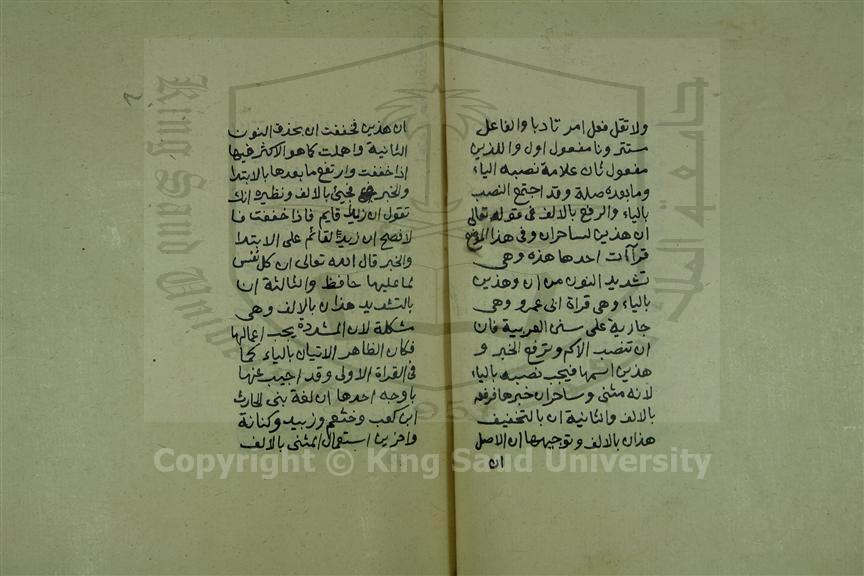 ولا تقل فعل امر تادبا والفاعل
مستتر ونا مفعول اول واللذين
مفعول ثان علامة نصبه الياء
وما بعده صلة وقد اجتمع النصب
بالياء والرفع بالالف فى قوله تعالى
ان هذين لساحران وفى هذا الموضع
قراآت احدها هذه وهى
تشديد النون من ان وهذين
بالياء وهى قراة ابى عمرو وهى
جارية على سنن العربية فان
ان تنصب الاسم وترفع الخبر و
هذين اسمها فيجب نصبه بالياء
لانه مثنى وساحران خبرها فرفعه
بالالف والثانية ان بالتخفيف
هذان بالالف وتوجيهها ان الاصل
ان
ان هذين فخففت ان بحذف النون
الثانية واهملت كما هو الاكثر فيها
اذا خففت وارتفع ما بعدها بالابتدا
والخبر فجئ بالالف ونظيره انك
تقول ان زيدا قايم فاذا خففت فا
لافصح ان زيد لقائم على الابتدا
والخبر قال الله تعالى ان كل نفس
لما عليها حافظ والثالثة ان
بالتشديد هذان بالالف وهى
مشكلة لان المشددة يجب اعمالها
فكان الظاهر الاتيان بالياء كما
فى القراة الاولى وقد اجيب عنها
باوجه احدها ان لغة بنى الحارث
ابن كعب وخثعم وزبيد وكنانة
واخرين استعمال المثنى بالالف
جامعة الملك
King Saud University
1957
Copyright © King Saud University